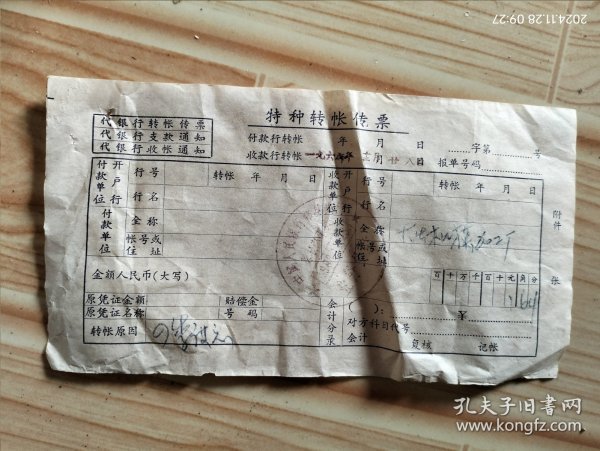 2024.11.28 09:27
特种转帐传票
代银行转帐传票
代银行支款通知
代银行收帐通知
付款行转帐 年 月 日 字第 号
收款行转帐 一九六 年 月 廿八日 报单号码
付款单位 开户行 行号 转帐 年 月 日 收款单位 开户行 行号 转帐 年 月 日
行名 行名
付款单位 全称 收款单位 全称
帐号或住址 帐号或住址
附件 张
金额人民币(大写) 百十万千百十元角分
原凭证金额 赔偿金 会计分录 ( ):
原凭证名称 号码 对方科目代号
转帐原因 会计 复核 记帐
¥
孔夫子旧书网
www.kongfz.com